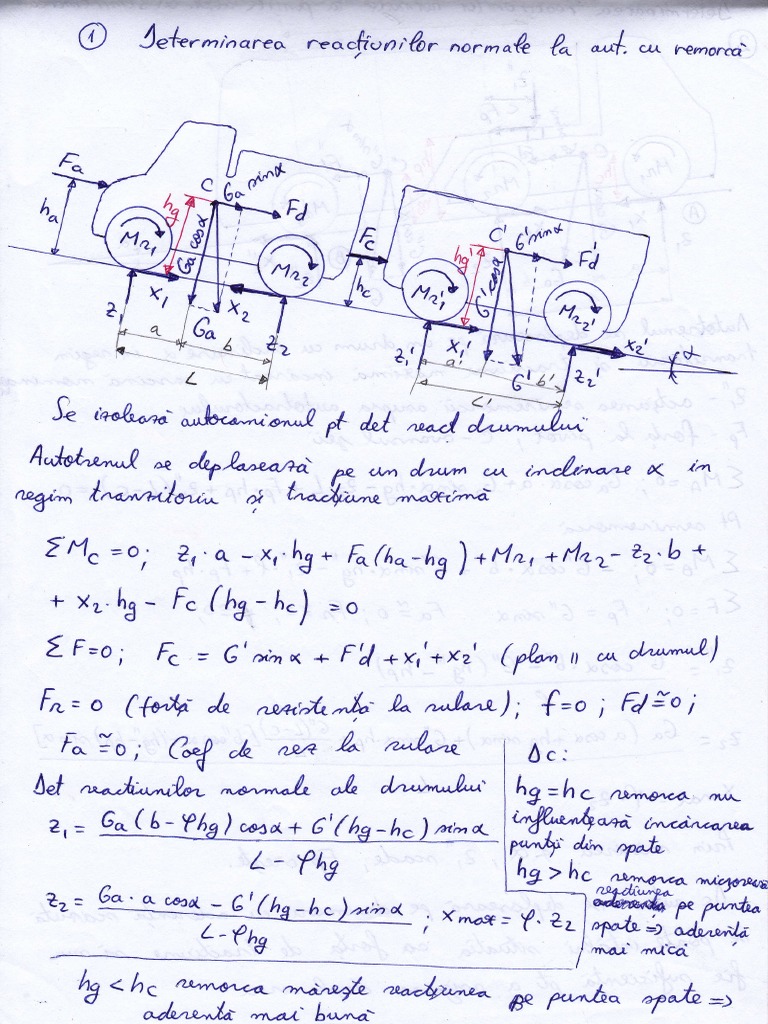 ① Determinarea reacțiunilor normale la aut. cu remorcă
Fa
ha
Mr1
hg
C
Ga sinα
Fd
Ga cosα
Mr2
Fc
hc
Z1
X1
Ga
X2
Z2
a
b
L
Mr1'
hg'
C'
G' sinα
Fd'
G' cosα
Mr2'
Z1'
X1'
a'
G'
b'
L'
Z2'
X2'
α
Se izolează autocamionul pt det react drumului
Autotrenul se deplasează pe un drum cu inclinare α in
regim tranzitoriu și tracțiune maximă
ΣMc = 0; Z1·a - X1·hg + Fa(ha-hg) + Mr1 + Mr2 - Z2·b +
+ X2·hg - Fc(hg-hc) = 0
ΣF=0; Fc = G' sinα + F'd + X1' + X2' (plan || cu drumul)
Fr = 0 (forță de rezistență la rulare); f=0; Fd≅0;
Fa ≅ 0; Coef de rez la rulare
Det reactiunilor normale ale drumului
Z1 = Ga(b-φhg) cosα + G'(hg-hc) sinα / L - φhg
Z2 = Ga·a cosα - G'(hg-hc) sinα / L-φhg ; Xmax = φ·Z2
Dc:
hg = hc remorca nu
influențează incărcarea
punții din spate
hg > hc remorca micșorează
reacțiunea
pe puntea
spate => aderență
mai mică
hg < hc remorca mărește reacțiunea pe puntea spate =>
aderentă mai bună